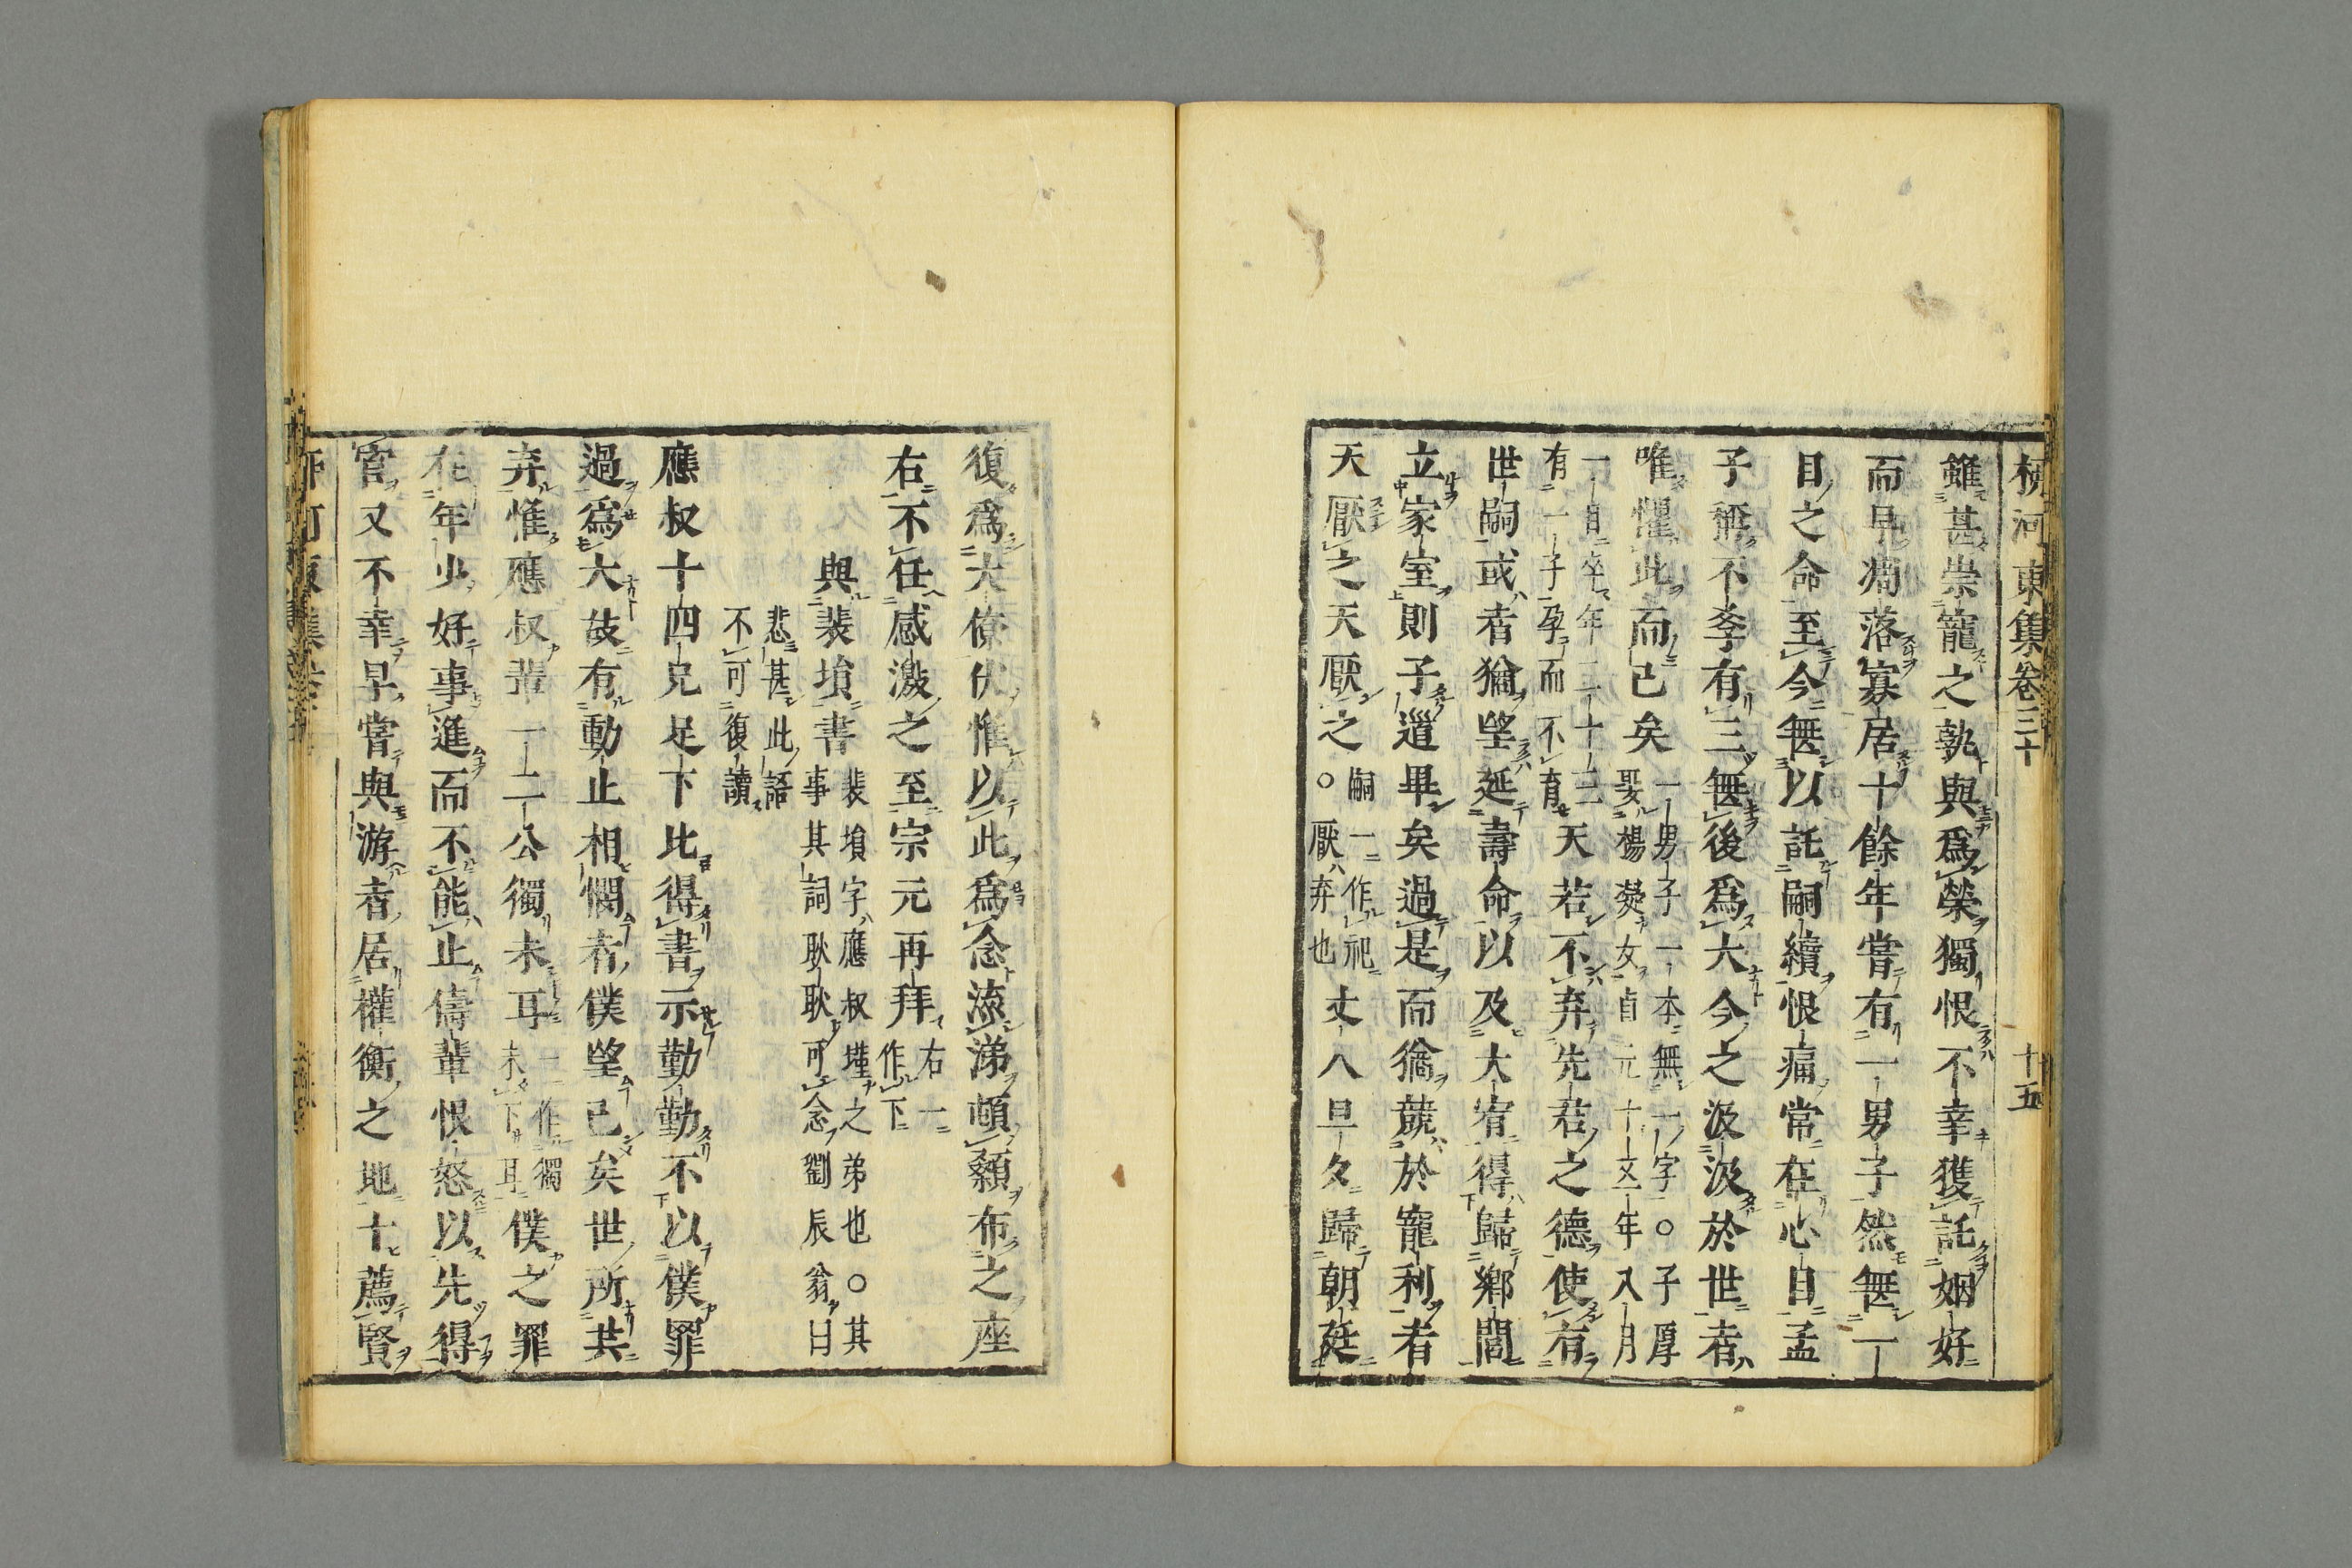 柳河東集卷三十　十五
雖甚崇寵之孰與爲榮獨恨不幸獲託姻好
而早凋落寡居十餘年嘗有一男子然無一
日之命至今無以託嗣續恨痛常在心目孟
子稱不孝有三無後爲大今之汲汲於世者
唯懼此而已矣一男子一本無一字○子厚
娶楊凝女貞元十五年八月
一日卒年二十三
有一子孕而不育天若不弃先君之德使有
世嗣或者猶望延壽命以及大宥得歸鄉閭
立家室則子道畢矣過是而猶競於寵利者
天厭之天厭之○嗣一作祀
厭弃也丈人旦夕歸朝廷
復爲大僚伏惟以此爲念流涕頓顙布之座
右不任感激之至宗元再拜右一
作下
與裴塤書裴塤字應叔墐之弟也○其
事其詞耿耿可念劉辰翁曰
悲甚此語
不可復讀
應叔十四兄足下比得書示勤勤不以僕罪
過爲大故有動止相憫者僕望已矣世所共
弃惟應叔輩一二公獨未耳一作獨
未下耳僕之罪
在年少好事進而不能止儔輩恨怒以先得
官又不幸早嘗與游者居權衡之地十薦賢